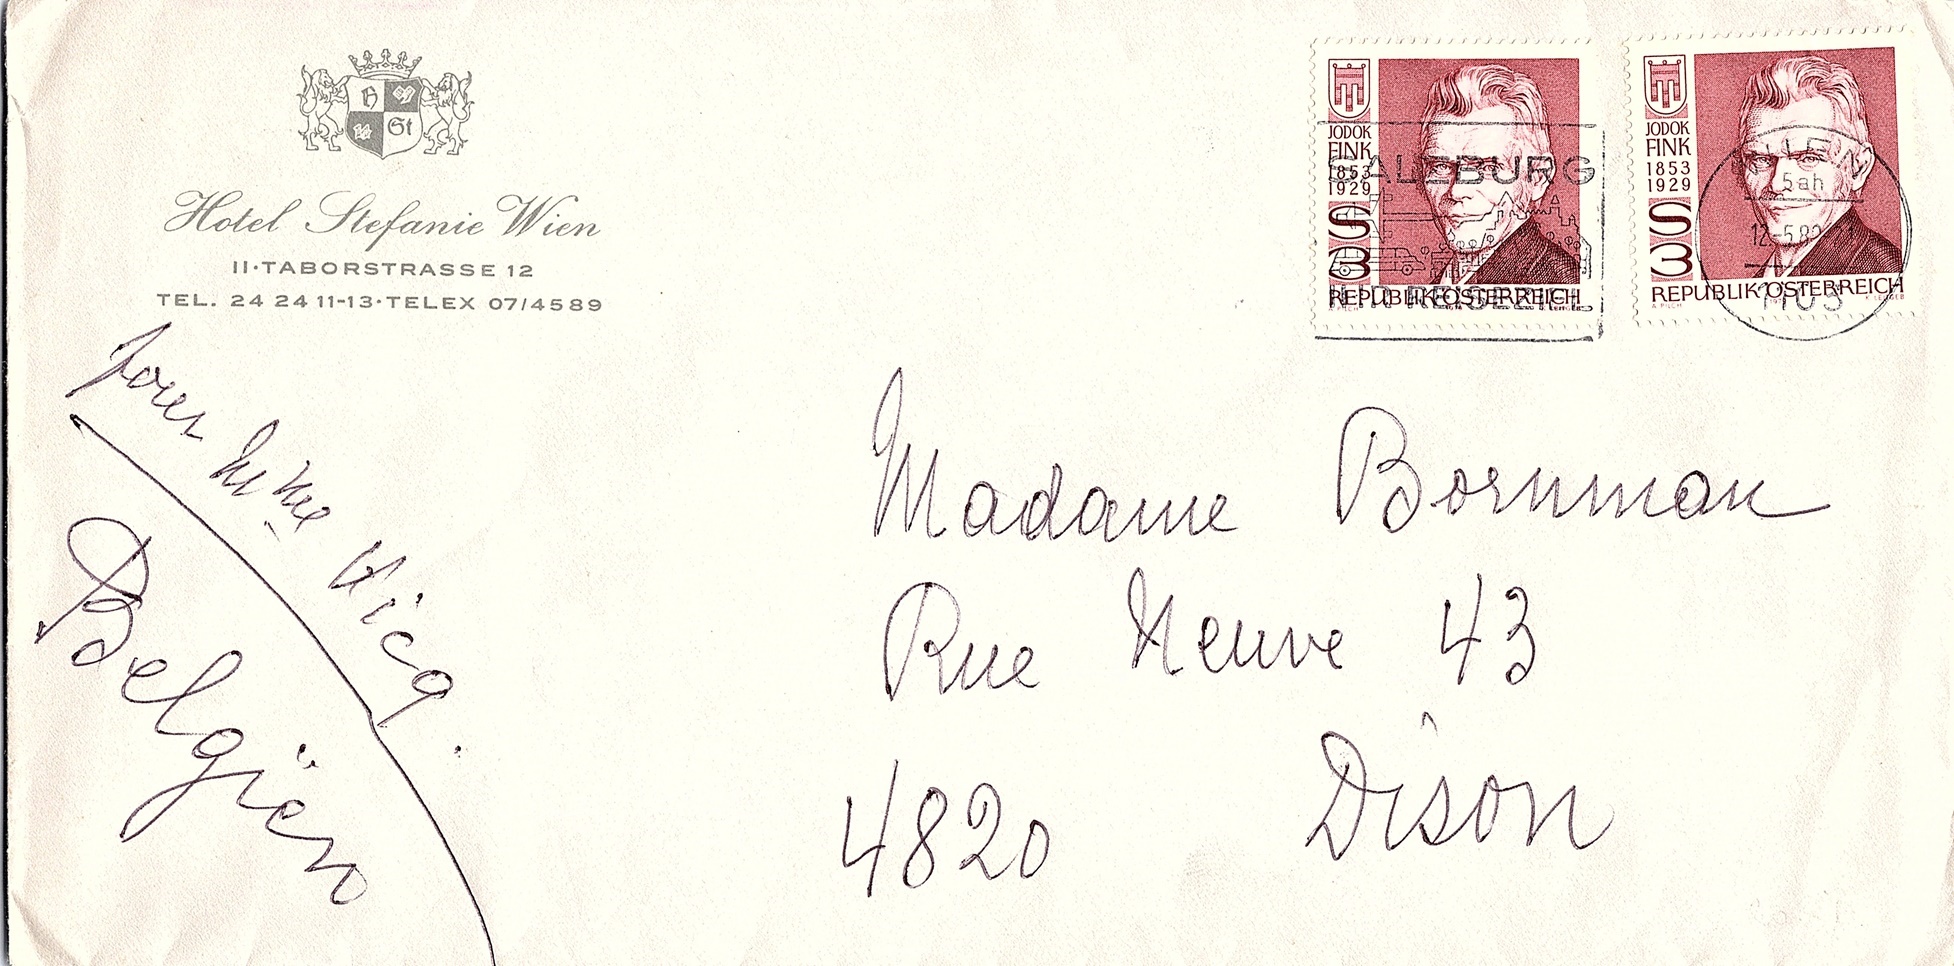 H
St
Hotel Stefanie Wien
II·TABORSTRASSE 12
TEL. 24 24 11-13·TELEX 07/4589
JODOK
FINK
1853
1929
S
3
REPUBLIK ÖSTERREICH
SALZBURG
JODOK
FINK
1853
1929
S
3
REPUBLIK ÖSTERREICH
WIEN
12.-5.82
1103
pour
Belgien
Madame Bornman
Rue Neuve 43
4820 Dison